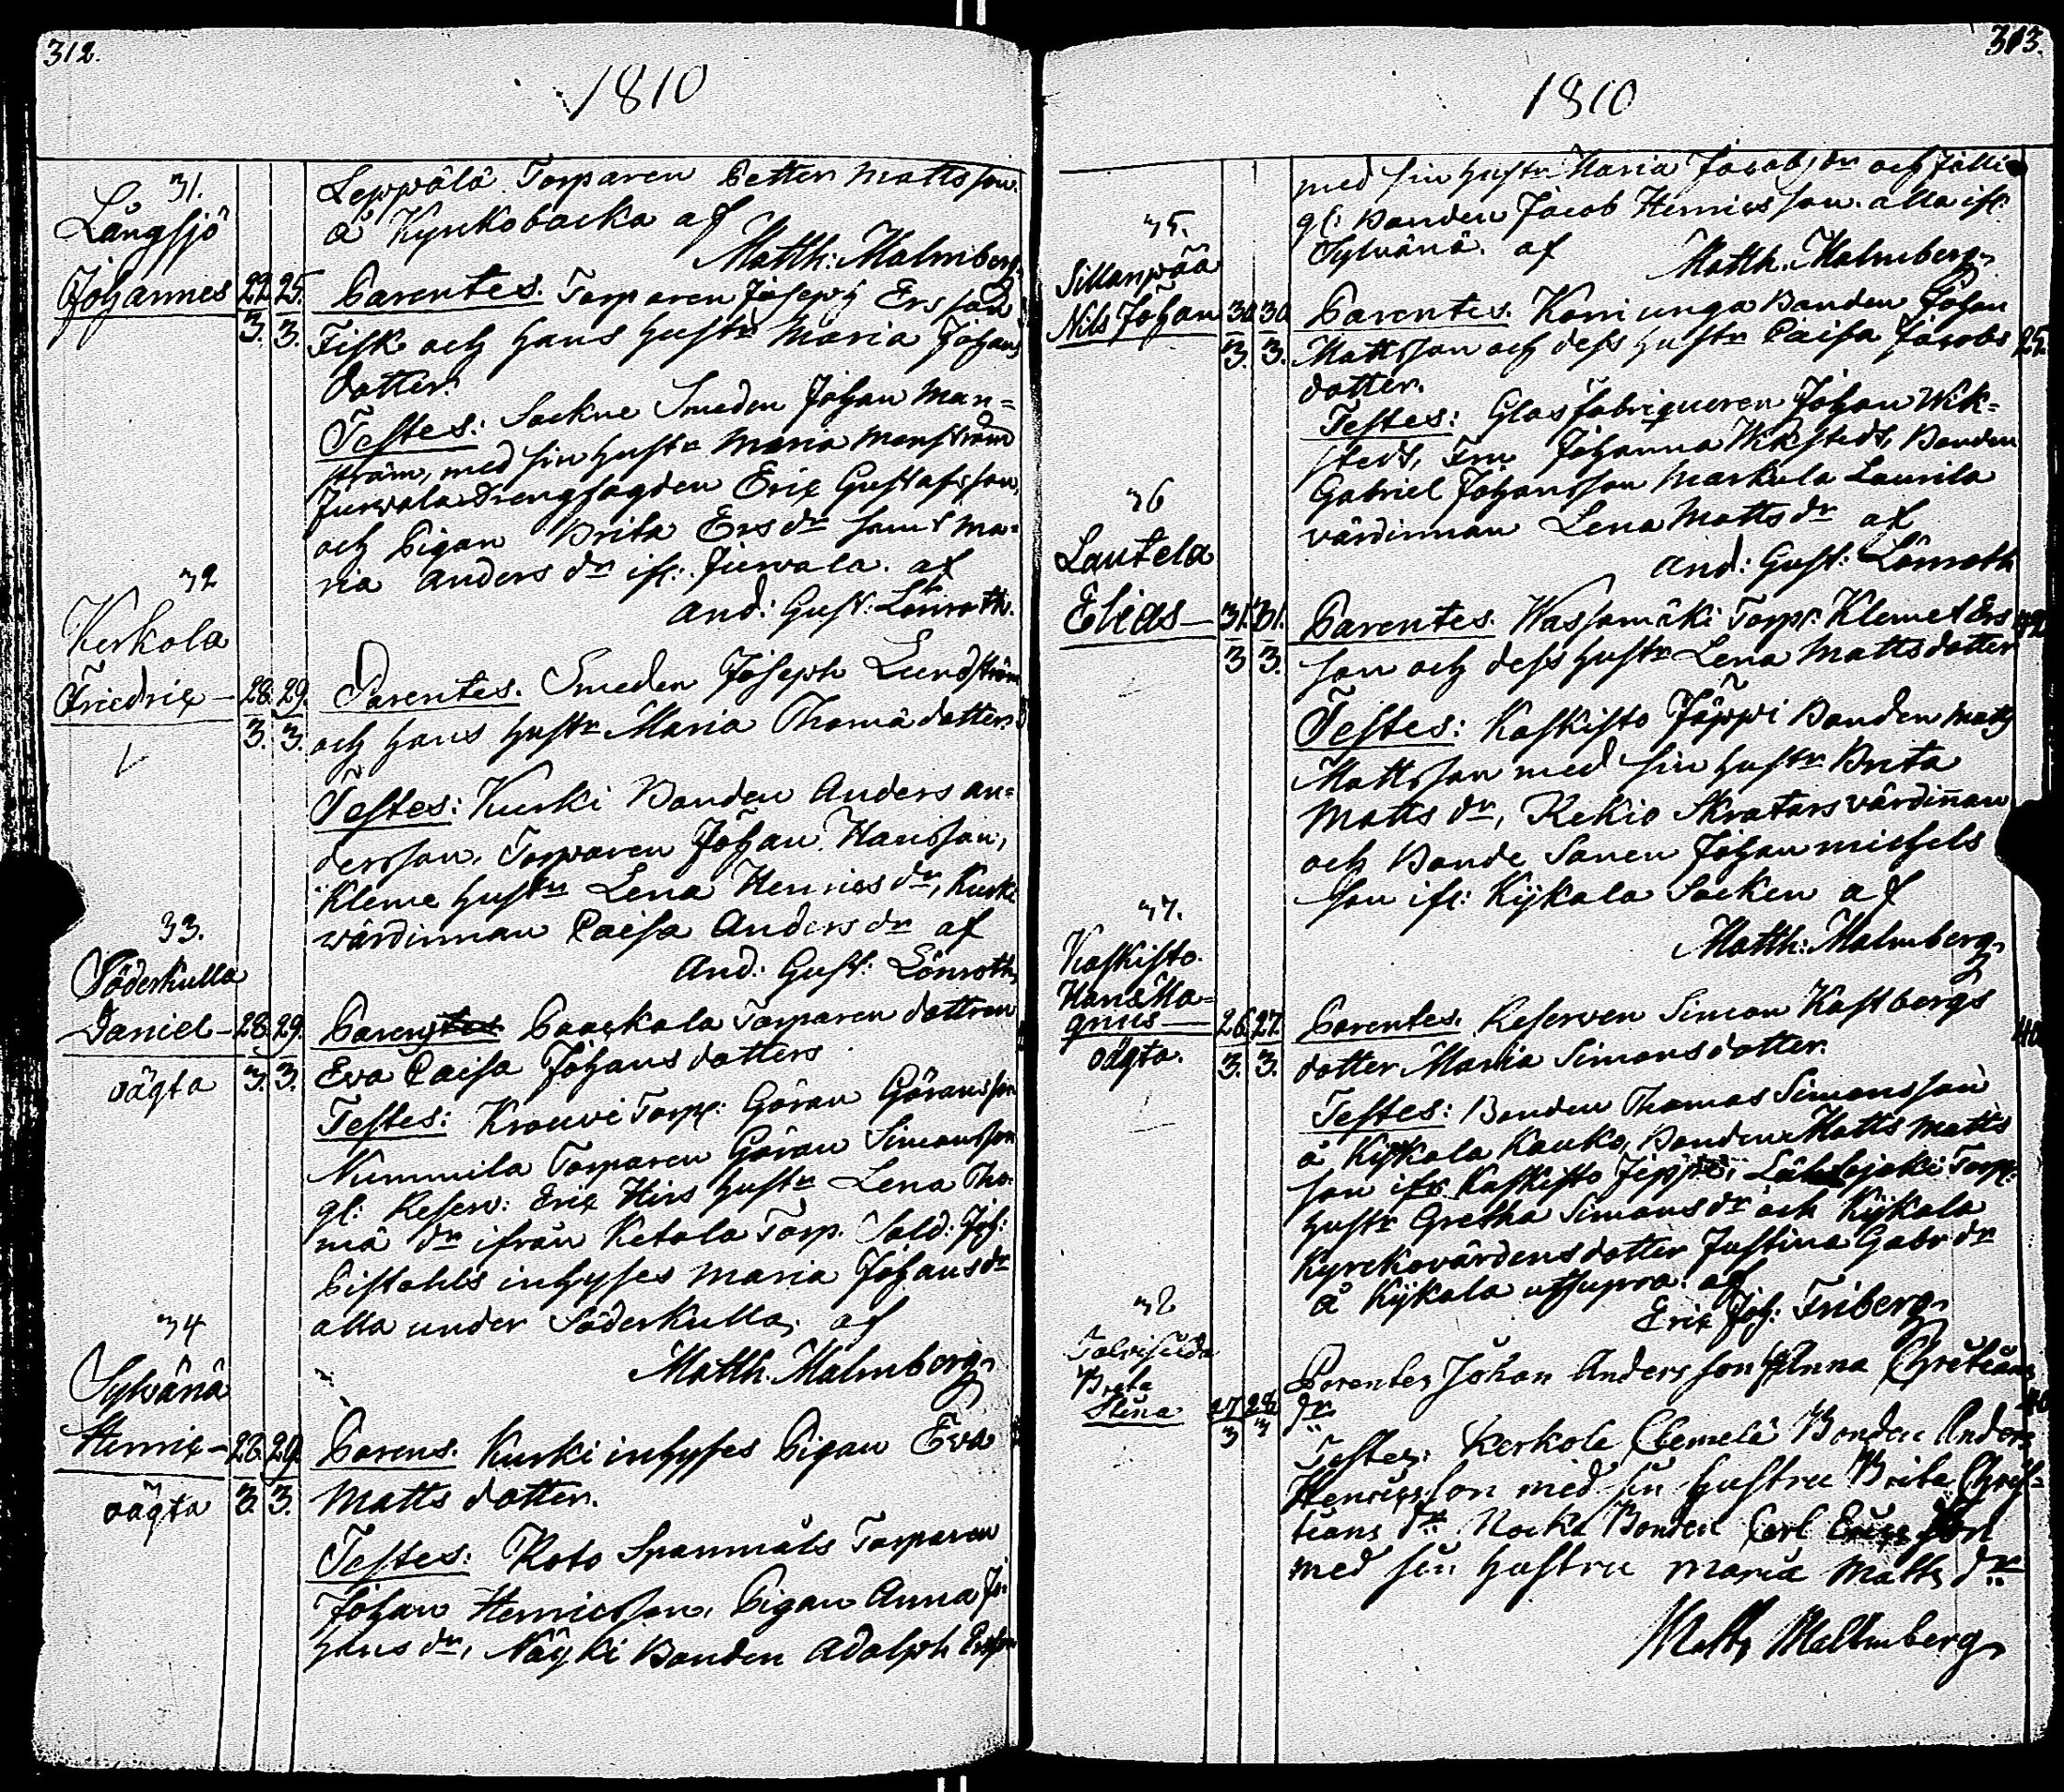 312.
1810
31.
Långsjö
Johannes 22. 25.
3. 3.
Leppälä Torparen Petter Mattsson
å Kyrckobacka af
Matth: Malmberg.
Parentes. Torparen Joseph Ersson
Fisk och hans hustr Maria Johans
dotter.
Testes: Sockne Smeden Johan Man=
ström, med sin hustr Maria Manström
Juvvala Drengfogden Eric Gustafsson,
och Pigan Brita Ersdr samt Ma=
ria Anders dr ifr: Juvvala. af
And: Gust: Lönroth.
32
Kerkola
Friedric 28. 29.
3. 3.
Parentes. Smeden Joseph Lundström
och hans hustr Maria Thomä dotter.
Testes: Kurki Bonden Anders An=
dersson, Torparen Johan Hansson,
Kleme hustr Lena Henricsdr, Kurki
värdinnan Caisa Andersdr af
And: Gust: Lönroth,
33.
Söderkulla
Daniel 28. 29.
oägta 3. 3.
Parens Torparen dottren
Eva Caisa Johansdotter
Testes: Krouvi Torp: Göran Göransson
Nummila Torparen Göran Simonsson
gl: Reserv: Eric Hirs hustr Lena Tho=
mä dr ifrån Ketola Torp. Sold: Joh:
Pistohls inhyses Maria Johansdr
alla under Söderkulla, af
Matth. Malmberg.
34
Sylvänä
Henric 28. 29.
oägta 3. 3.
Parens. Kurki inhyses Pigan Eva
Matts dotter.
Testes: Koto Spanmåls Torparen
Johan Henricsson, Pigan Anna Jo=
hans dr, Näyki Bonden Adolph Ersson
313.
1810
med sin hustr Maria Jacobs dr och
gl: Bonden Jacob Henricsson. alla ifr:
Sylvänä. af
Matth. Malmberg.
35.
Sillanpää
Nils Johan 30. 30.
3. 3.
Parentes. Konunga Bonden Johan
Mattsson och dess hustr Caisa Jacobs
dotter. 25.
Testes: Glasfabriqueuren Johan Wik=
stedt, Fru Johanna Wikstedt, Bonden
Gabriel Johansson Markula Laurila
värdinnan Lena Mattsdr af
And: Gust: Lönroth
36
Lautela
Elias 31. 31.
3 3.
Parentes. Wassamäki Torp: Klemet Ers
son och dess hustr Lena Mattsdotter
Testes: Koskisto Jöppi Bonden Matts
Mattsson med sin hustr Brita
Matts dr, Kekio Skratars värdinnan
och Bonde Sonen Johan Michels
son ifr: Kijkala Socken af
Matth: Malmberg,
37.
Koskisto.
Hans Ma=
gnus 26. 27.
oägta. 3. 3.
Parentes. Reserven Simon Kastbergs
dotter Maria Simonsdotter.
Testes: Bonden Thomas Simonsson
å Kijkala Kauko, Bonden Matts Matts
son ifr Koskisto Jeppi, Torp:
hustr Gretha Simonsdr och Kijkala
Kyrckovärdens dotter Justina Gabr dr
å Kijkala utsupra. af
Eric Joh: Friberg,
38
Talvisilda
Brita
Stina 27. 28.
3 3
Parentes Johan Andersson Anna Christians
dr
Testes: Kerkola Clemelä Bonden Anders
Henricsson med sin hustru Brita Chris=
tians dr Nocka Bonden Carl Ericsson
med sin hustru Maria Matts dr
Matts Mallmberg,